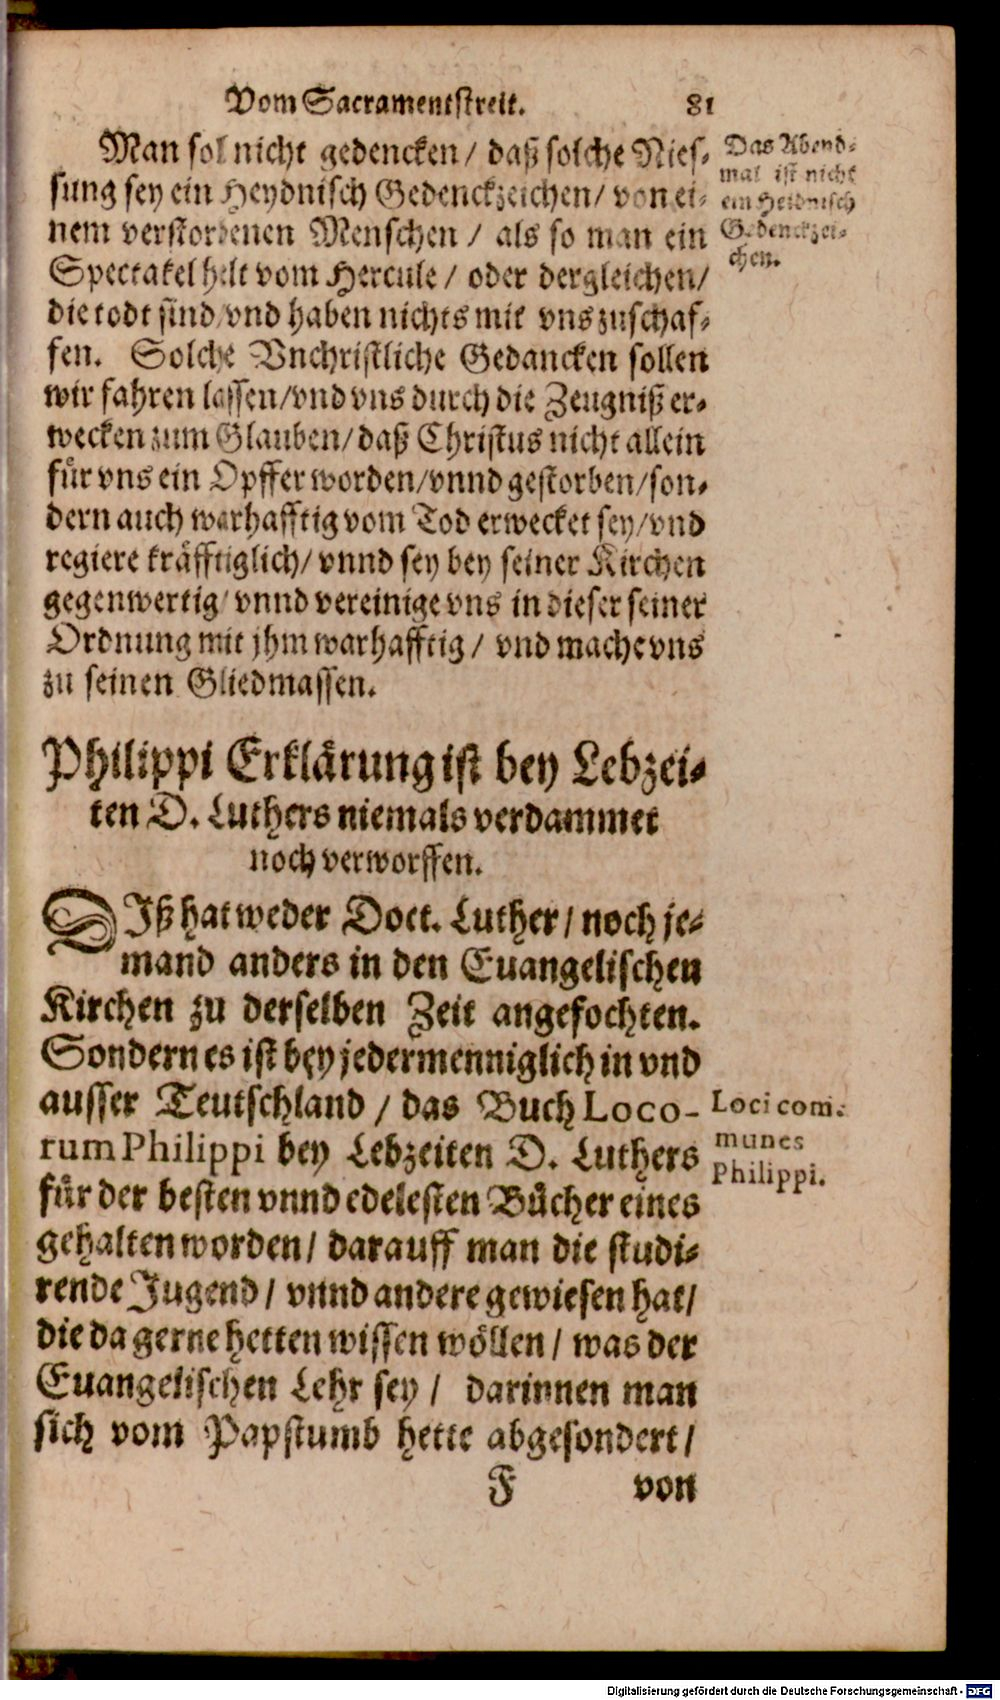 Vom Sacramentstreit. 81
Man sol nicht gedencken / daß solche Nies-
sung sey ein Heydnisch Gedenckzeichen / von ei-
nem verstorbenen Menschen / als so man ein
Spectakel helt vom Hercule / oder dergleichen /
die todt sind / vnd haben nichts mit vns zuschaf-
fen. Solche Vnchristliche Gedancken sollen
wir fahren lassen / vnd vns durch die Zeugniß er-
wecken zum Glauben / daß Christus nicht allein
für vns ein Opffer worden / vnnd gestorben / son-
dern auch warhafftig vom Tod erwecket sey / vnd
regiere kräfftiglich / vnnd sey bey seiner Kirchen
gegenwertig / vnnd vereinige vns in dieser seiner
Ordnung mit jhm warhafftig / vnd mache vns
zu seinen Gliedmassen.
Das Abend-
mal ist nicht
ein Heidnisch
Gedenckzei-
chen.
Philippi Erklärung ist bey Lebzei-
ten D. Luthers niemals verdammet
noch verworffen.
DIß hat weder Doct. Luther / noch je-
mand anders in den Euangelischen
Kirchen zu derselben Zeit angefochten.
Sondern es ist bey jedermenniglich in vnd
ausser Teutschland / das Buch Loco-
rum Philippi bey Lebzeiten D. Luthers
für der besten vnnd edelesten Bücher eines
gehalten worden / darauff man die studi-
rende Jugend / vnnd andere gewiesen hat /
die da gerne hetten wissen wöllen / was der
Euangelischen Lehr sey / darinnen man
sich vom Papstumb hette abgesondert /
Loci com-
munes
Philippi.
F von
Digitalisierung gefördert durch die Deutsche Forschungsgemeinschaft - DFG